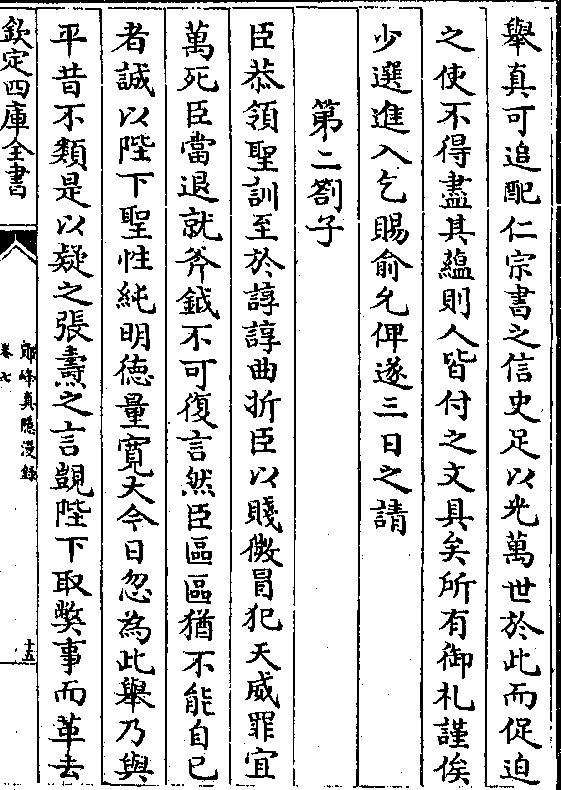 舉真可追配仁宗書之信史足以光萬世於此而促迫
之使不得盡其蘊則人皆付之文具矣所有御札謹俟
少選進入乞賜俞允俾遂三日之請
第二劄子
臣恭領聖訓至於諄諄曲折臣以賤微冒犯天威罪宜
萬死臣當退就斧鉞不可復言然臣區區猶不能自已
者誠以陛下聖性純明德量寛大今日忽為此舉乃與
平昔不類是以疑之張燾之言覬陛下取獘事而革去
欽定四庫全書
鄮峰真隠漫録
卷七
十五